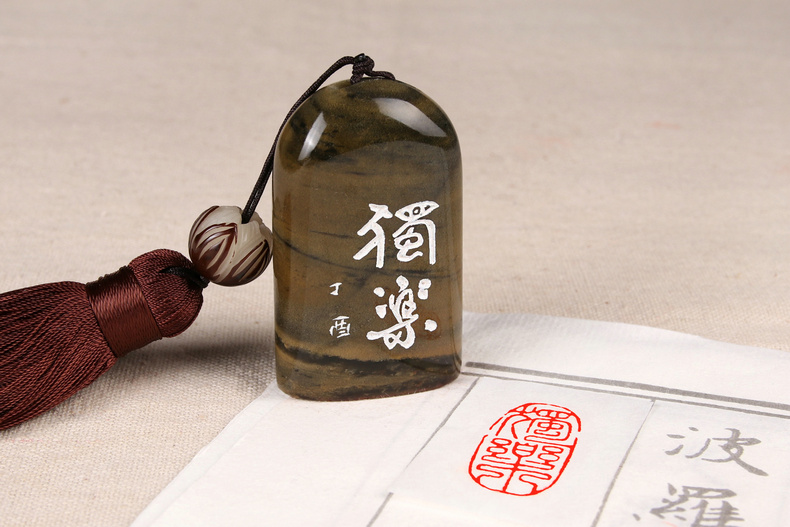 獨
楽
丁酉
獨樂
波羅